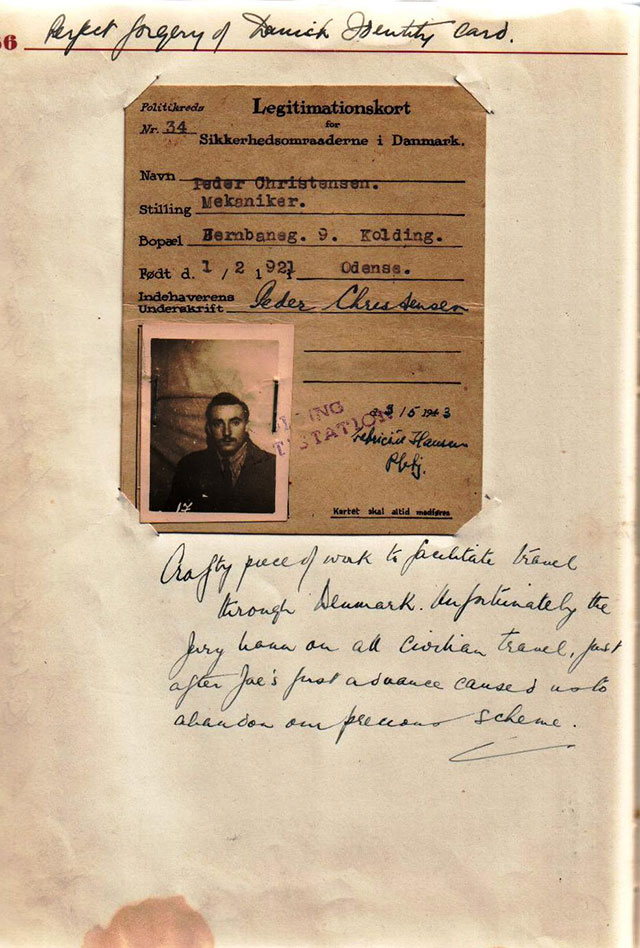 66 Perfect forgery of Danish Identity Card.
Politikreds
Nr. 34
Legitimationskort
for
Sikkerhedsomraaderne i Danmark.
Navn Peder Christensen.
Stilling Mekaniker.
Bopæl Jernbaneg. 9. Kolding.
Født d. 1/2 1921 Odense.
Indehaverens
Underskrift Peder Christensen
3/5 1943
STATION
Hansen
Pbtj.
17
Kortet skal altid medføres
Crafty piece of work to facilitate travel
through Denmark. Unfortunately the
Jerry bann on all civilian travel, just
after Joe's first advance caused us to
abandon our precious scheme.